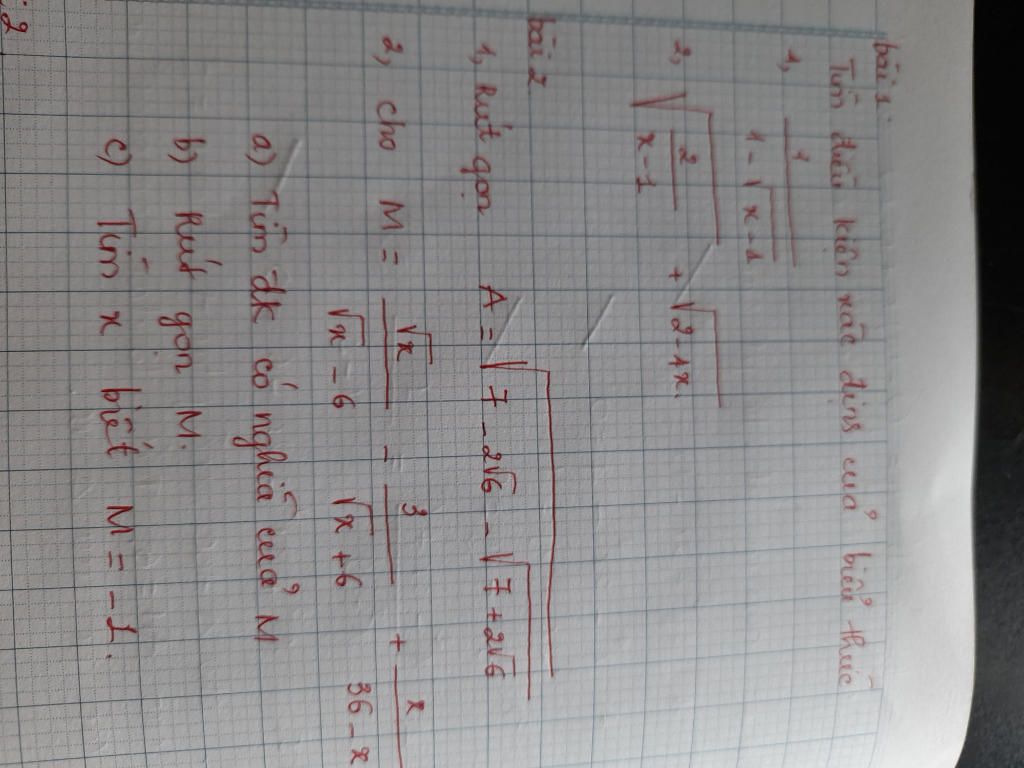 bài 1.
Tìm điều kiện xác định của biểu thức
1, 1 / (1 - √(x-1))
2, √(2/(x-1)) + √(2-1x)
bài 2
1, Rút gọn A = √(7 - 2√6 - √(7+2√6))
2, cho M = √x/(√x - 6) - 3/(√x + 6) + x/(36 - x)
a) Tìm đk có nghĩa của M
b) Rút gọn M.
c) Tìm x biết M = -1.